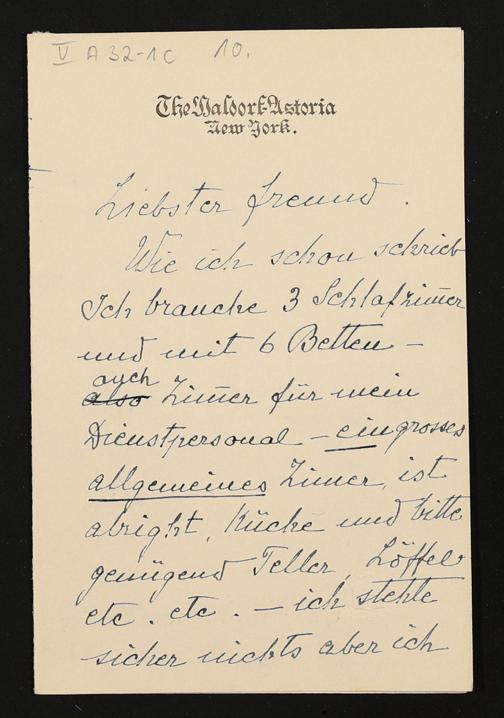 V A 32-1C 10.
The Waldorf-Astoria
New York.
Liebster Freund.
Wie ich schon schrieb
Ich brauche 3 Schlafzim̅er
und mit 6 Betten –
auch
also Zim̅er für mein
Dienstpersonal – ein grosses
allgemeines Zimer, ist
alright, Küche und bitte
genügend Teller, Löffel
etc. etc. – ich stehle
sicher nichts aber ich